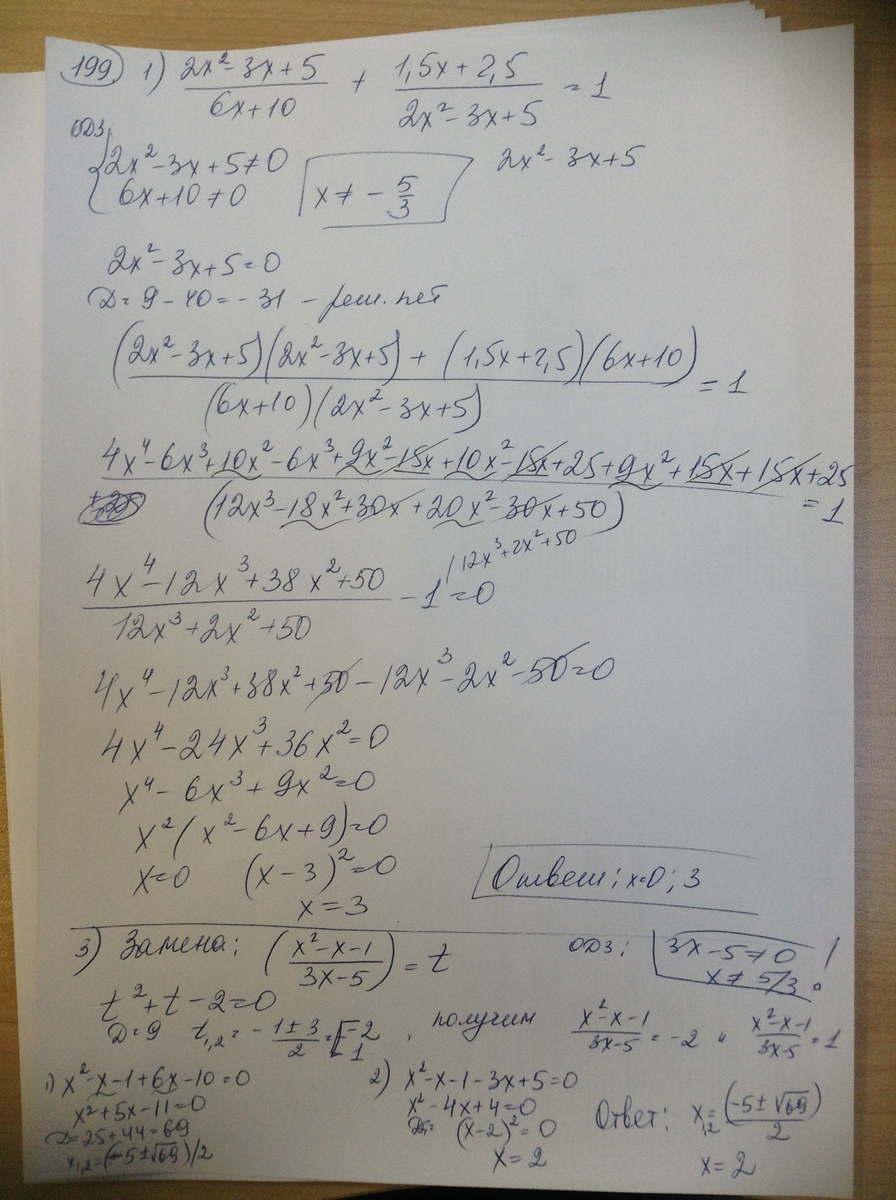 199 1) (2x² - 3x + 5)/(6x + 10) + (1,5x + 2,5)/(2x² - 3x + 5) = 1
ОДЗ:
{ 2x² - 3x + 5 ≠ 0
6x + 10 ≠ 0
x ≠ - 5/3
2x² - 3x + 5
2x² - 3x + 5 = 0
D = 9 - 40 = - 31 - реш. нет
((2x² - 3x + 5)(2x² - 3x + 5) + (1,5x + 2,5)(6x + 10))/((6x + 10)(2x² - 3x + 5)) = 1
(4x⁴ - 6x³ + 10x² - 6x³ + 9x² - 15x + 10x² - 15x + 25 + 9x² + 15x + 15x + 25)/(12x³ - 18x² + 30x + 20x² - 30x + 50) = 1
(4x⁴ - 12x³ + 38x² + 50)/(12x³ + 2x² + 50) - 1 = 0
| 12x³ + 2x² + 50
4x⁴ - 12x³ + 38x² + 50 - 12x³ - 2x² - 50 = 0
4x⁴ - 24x³ + 36x² = 0
x⁴ - 6x³ + 9x² = 0
x² (x² - 6x + 9) = 0
x = 0 (x - 3)² = 0
x = 3
Ответ: x = 0; 3
3) Замена: ((x² - x - 1)/(3x - 5)) = t
ОДЗ: 3x - 5 ≠ 0 !
x ≠ 5/3
t² + t - 2 = 0
D = 9 t₁,₂ = (-1 ± 3)/2 = [ -2
1
, получим (x² - x - 1)/(3x - 5) = -2 и (x² - x - 1)/(3x - 5) = 1
1) x² - x - 1 + 6x - 10 = 0
x² + 5x - 11 = 0
D = 25 + 44 = 69
x₁,₂ = (-5 ± √69)/2
2) x² - x - 1 - 3x + 5 = 0
x² - 4x + 4 = 0
(x - 2)² = 0
x = 2
Ответ: x₁,₂ = (-5 ± √69)/2
x = 2